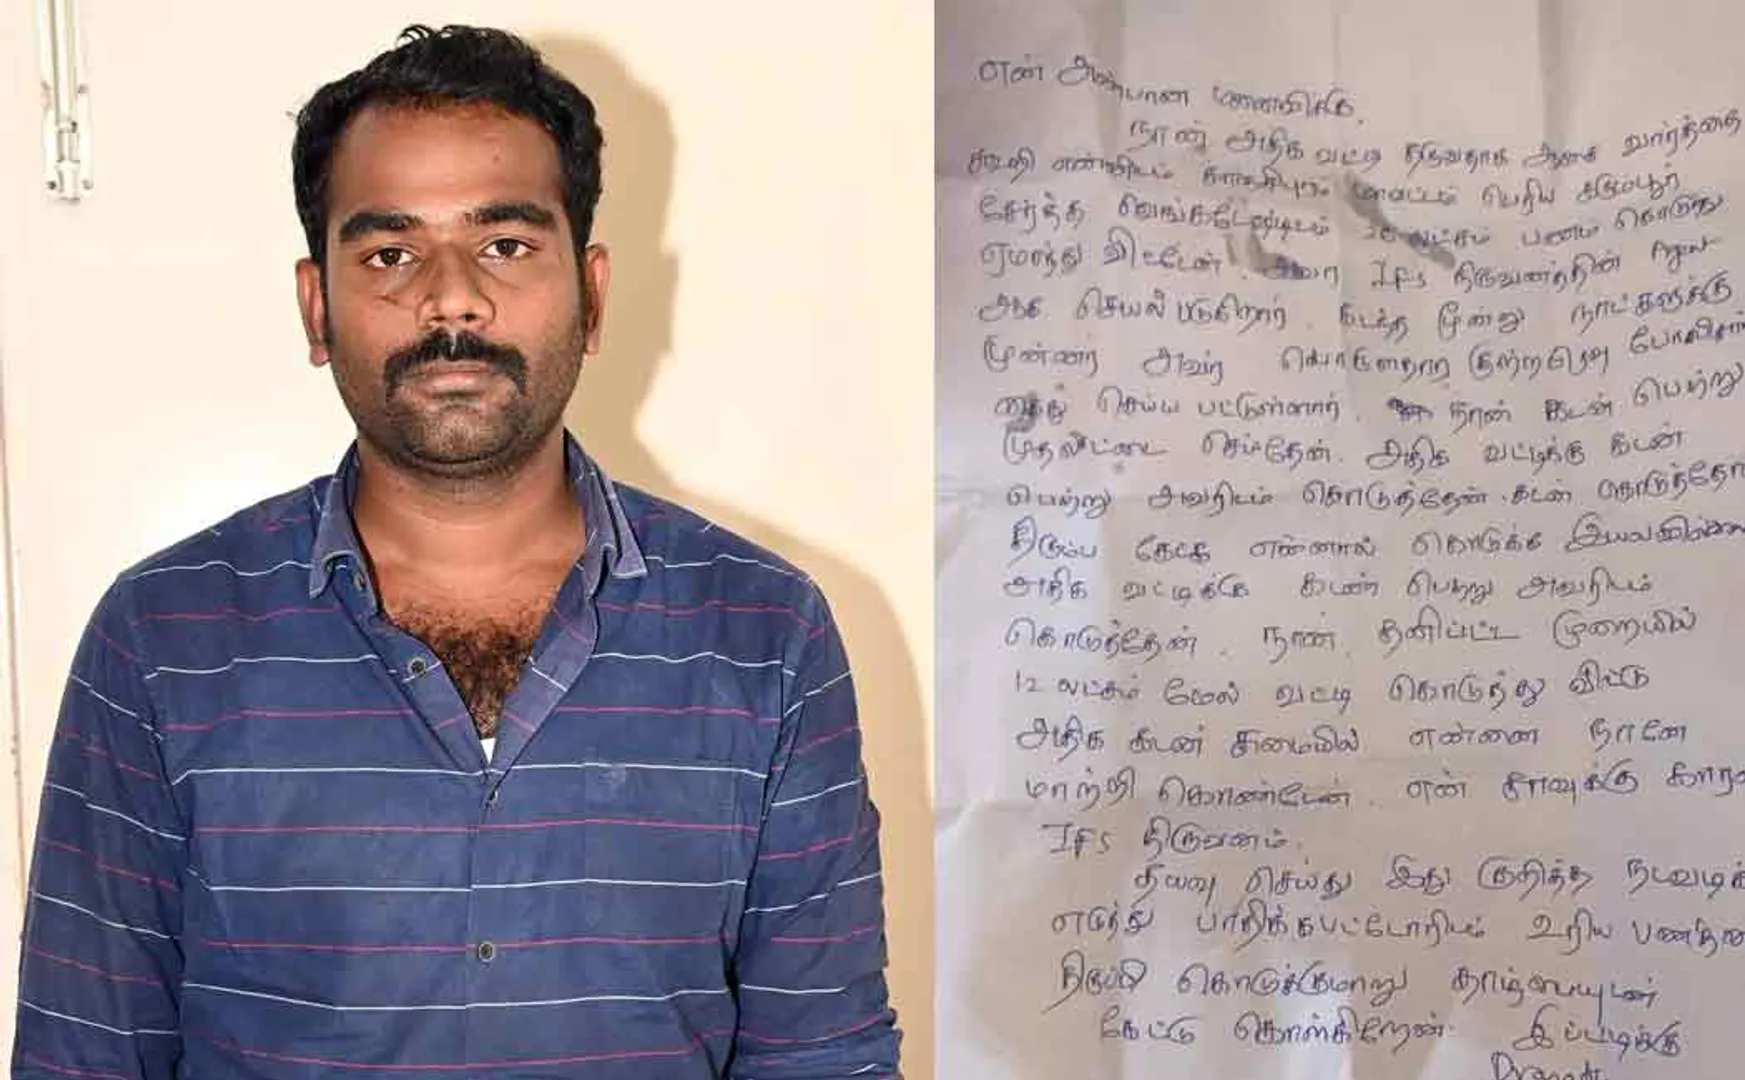 என் அன்பான மனைவிக்கு,
நான் அதிக வட்டி தருவதாக ஆசை வார்த்தை
கூறி என்னிடம் காஞ்சிபுரம் மாவட்டம் பெரிய கரும்பூர்
சேர்ந்த வெங்கடேஷிடம் லட்சம் பணம் கொடுத்து
ஏமாந்து விட்டேன். அவர் IFS நிருவனத்தின்
ஆக செயல் படுகிறார். கடந்த மூன்று நாட்களுக்கு
முன்னர் அவர் பொருளாதார குற்றபிரிவு போலிசார்
கைது செய்ய பட்டுள்ளார். நான் கடன் பெற்று
முதலீட்டை செய்தேன். அதிக வட்டிக்கு கடன்
பெற்று அவரிடம் கொடுத்தேன். கடன் கொடுத்தோர்
திரும்ப கேட்க என்னால் கொடுக்க இயலவில்லை
அதிக வட்டிக்கு கடன் பெற்று அவரிடம்
கொடுத்தேன். நான் தனிப்பட்ட முறையில்
12 லட்சம் மேல் வட்டி கொடுத்து விட்டு
அதிக கடன் சுமையில் என்னை நானே
மாற்றி கொண்டேன். என் சாவுக்கு காரண
IFS நிருவனம்.
தியவு செய்து இது குறித்த நடவடிக்
எடுத்து பாதிக்கபட்டோரிடம் உரிய பணத்தை
திருப்பி கொடுக்குமாறு தாழ்மையுடன்
கேட்டு கொள்கிறேன். இப்படிக்கு